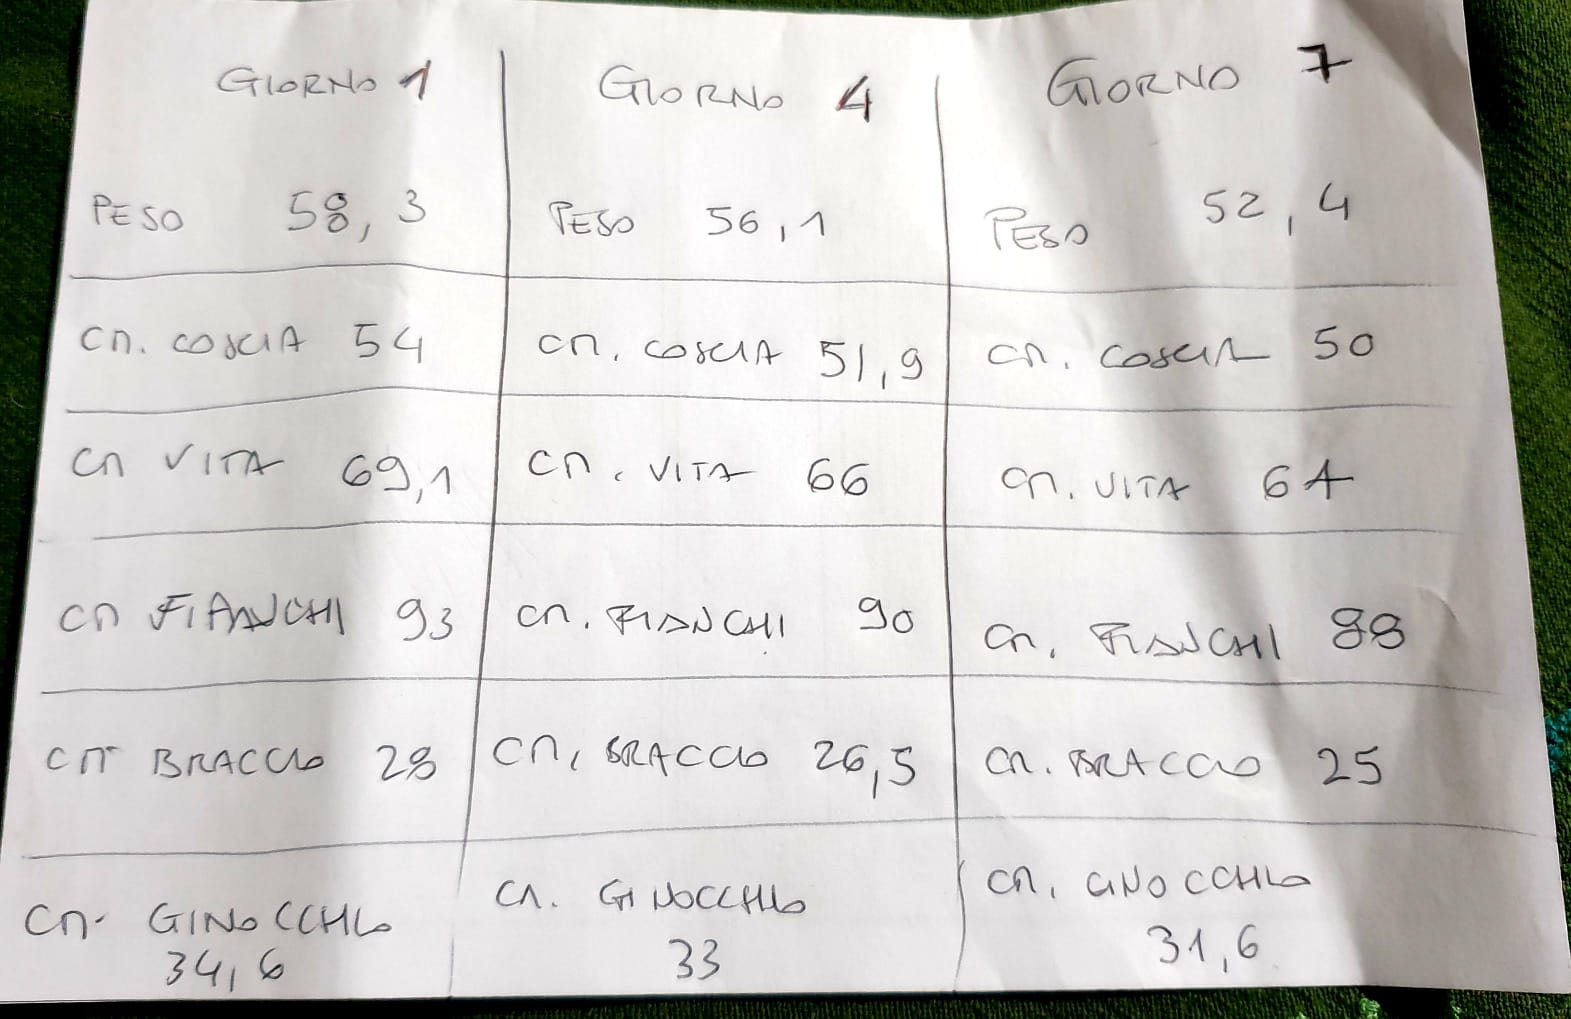 GIORNO 1
PESO 58,3
CM. COSCIA 54
CM VITA 69,1
CM FIANCHI 93
CM BRACCIO 28
CM. GINOCCHIO
34,6
GIORNO 4
PESO 56,1
CM. COSCIA 51,9
CM. VITA 66
CM. FIANCHI 90
CM. BRACCIO 26,5
CM. GINOCCHIO
33
GIORNO 7
PESO 52,4
CM. COSCIA 50
CM. VITA 64
CM. FIANCHI 88
CM. BRACCIO 25
CM. GINOCCHIO
31,6